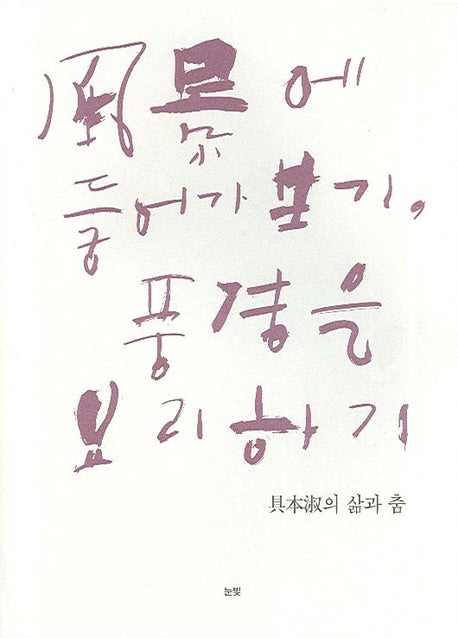 風景에
들어가 보기,
풍경을
요리하기
具本淑의 삶과 춤
눈빛